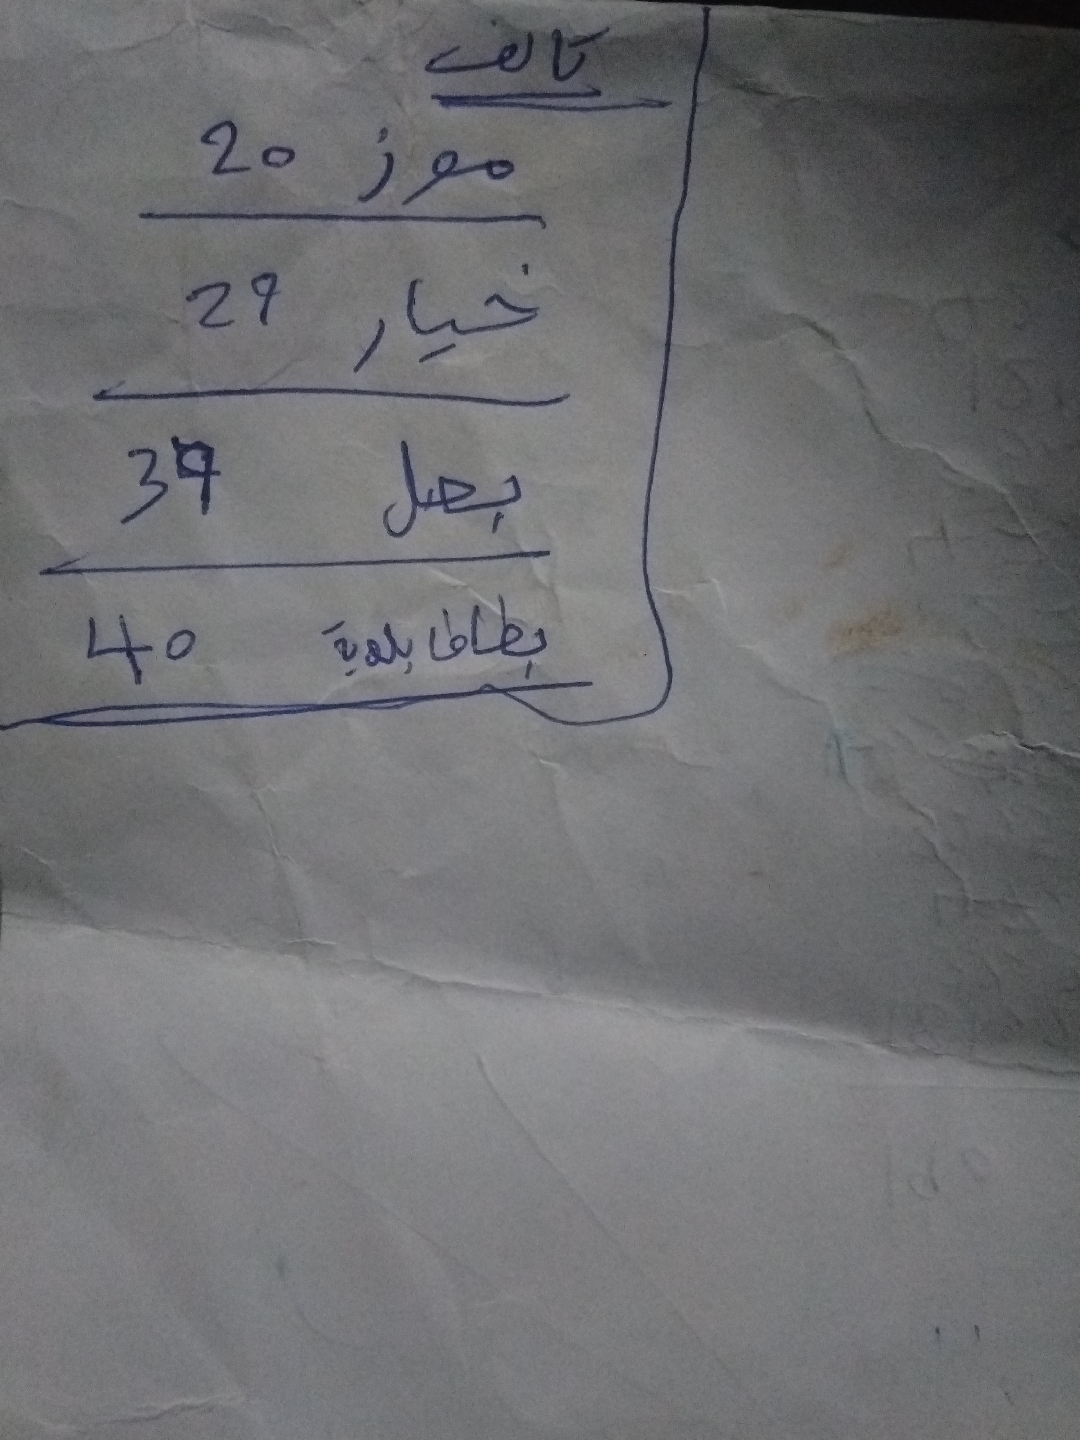 تالف
موز 20
خيار 29
بصل 39
بطاطا بلدية 40